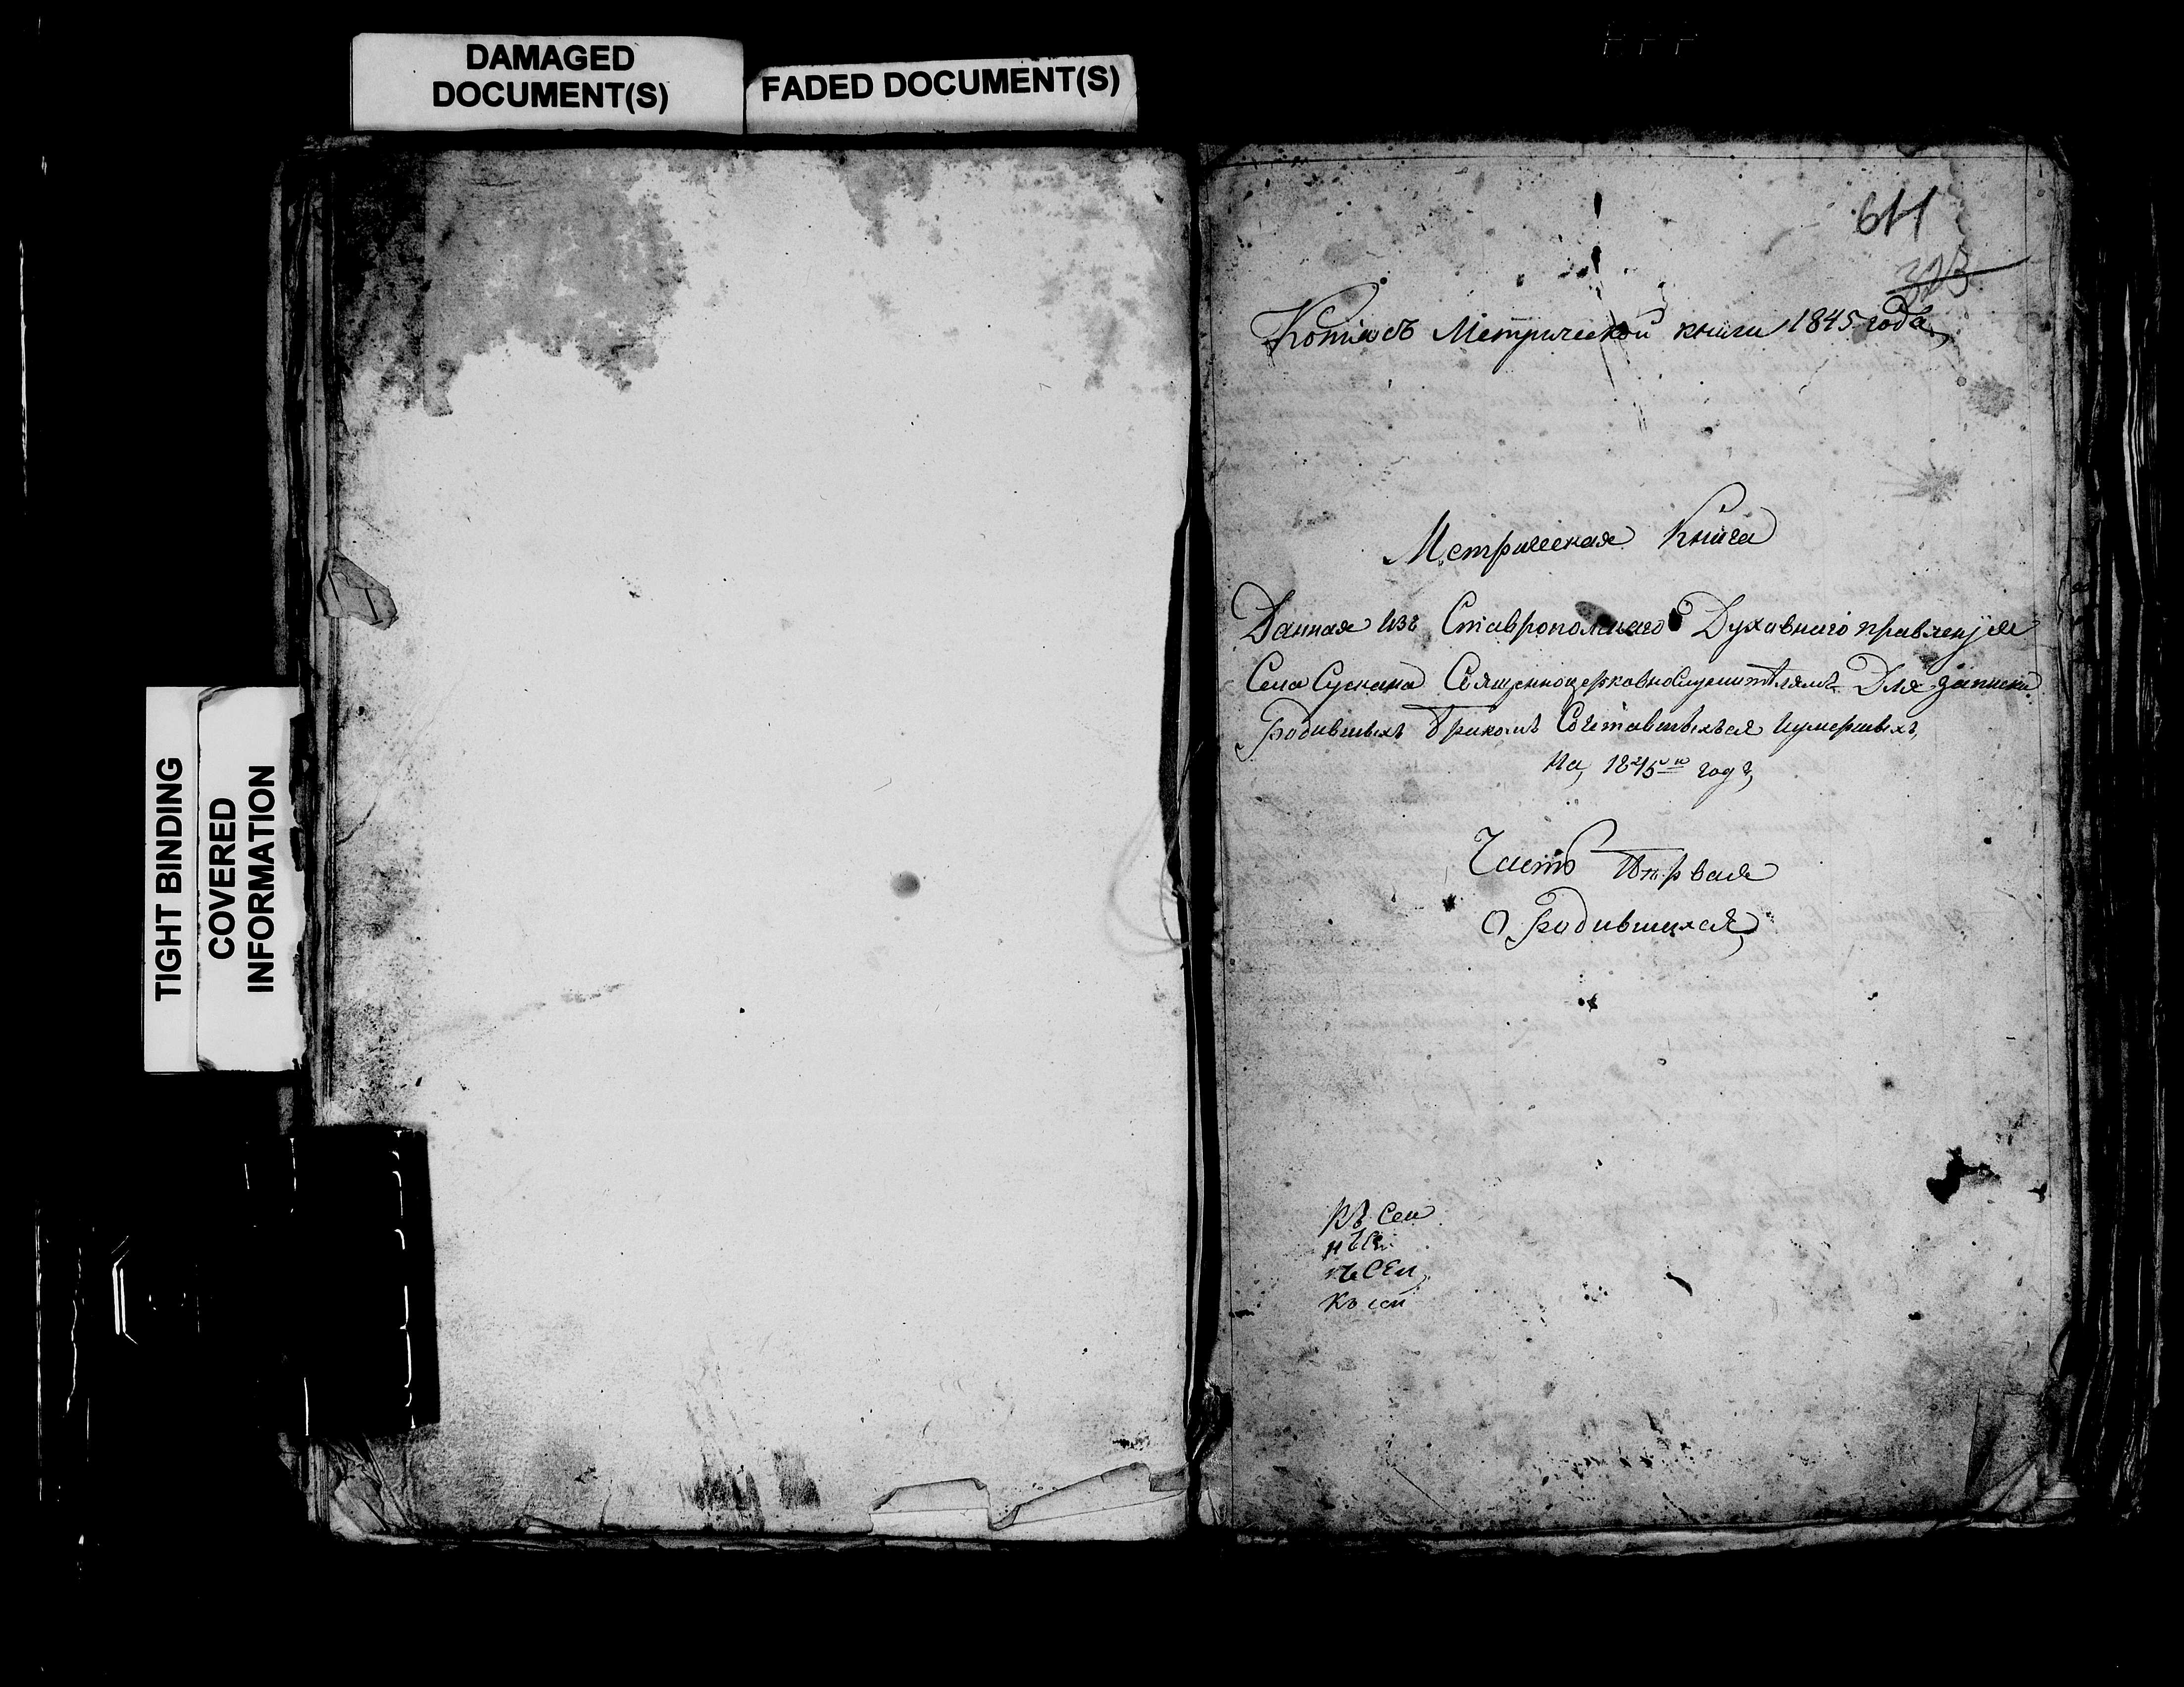 DAMAGED
DOCUMENT(S)
FADED DOCUMENT(S)
TIGHT BINDING
COVERED
INFORMATION
611
323
Копія съ Метрической книги 1845 года,
Метрическая Книга
Данная изъ Ставропольскаго Духовнаго правленія
Села Сускана Священноцерковнослужителямъ Для записки
Родившихъ Бракомъ Сочетавшихъся Иумершихъ,
На, 1845 годъ,
Часть Первая
О Родившихся,
Къ сеи